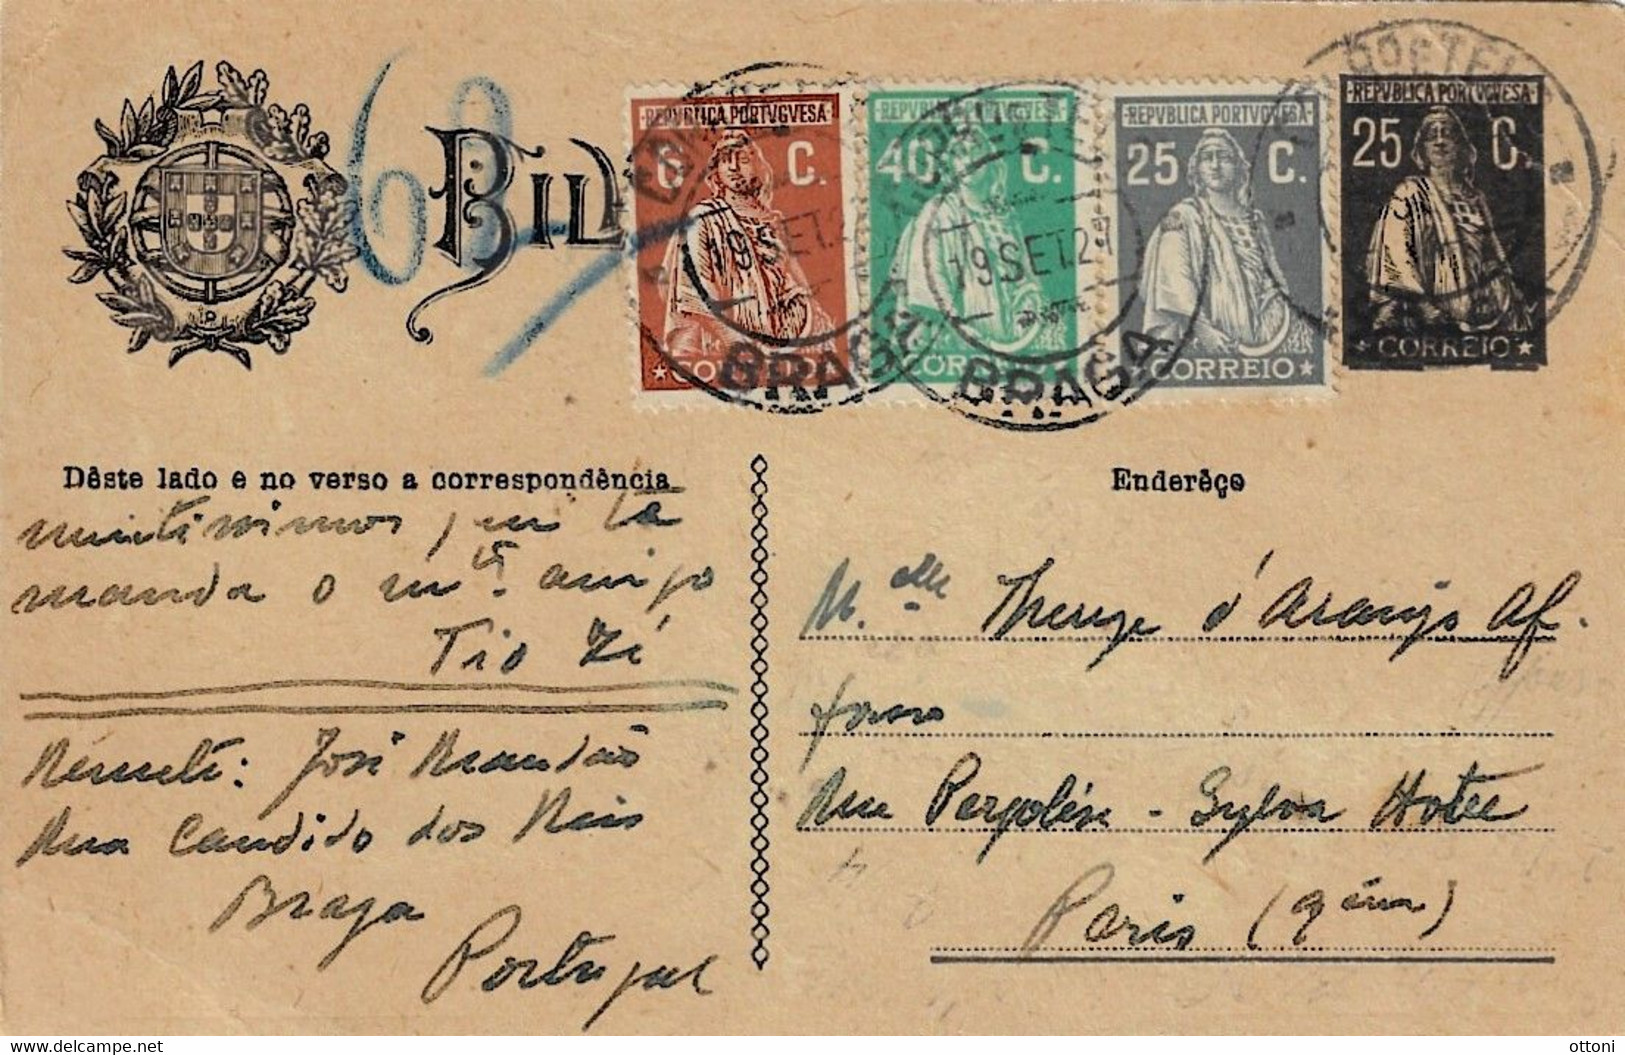 BIL
REPVBLICA PORTVGVESA
6 C.
CORREIO
REPVBLICA PORTVGVESA
40 C.
CORREIO
REPVBLICA PORTVGVESA
25 C.
CORREIO
REPVBLICA PORTVGVESA
25 C.
CORREIO
19 SET.2
BRAGA
19 SET.2
BRAGA
Dêste lado e no verso a correspondência
muitissimos
manda o m.to amigo
Tio Zé
Remete: José Brandão
Rua Candido dos Reis
Braga
Portugal
Enderêço
M.elle Thereze d'Araujo Af.
fonso
Rue Pergolése - Sylva Hotel
Paris (9éme)
delcampe.net
ottoni